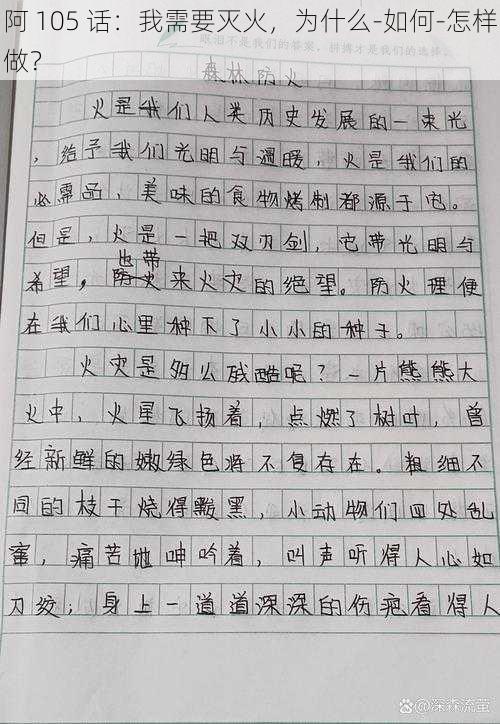 阿 105 话：我需要灭火，为什么-如何-怎样
做？
眼泪不是我们的答案，拼搏才是我们的选择。
森林防火
火是我们人类历史发展的一束光
，给予我们光明与温暖，火是我们的
必需品，美味的食物烤制都源于它。
但是，火是一把双刃剑，它带光明与
也带
希望，防火来火灾的绝望。防火理便
在我们心里种下了小小的种子。
火灾是多么残酷呢？一片熊熊大
火中，火星飞扬着，点燃了树叶，曾
经新鲜的嫩绿色将不复存在。粗细不
同的枝干烧得黢黑，小动物们四处乱
窜，痛苦地呻吟着，叫声听得人心如
刀绞，身上一道道深深的伤疤看得人
@深森流萤